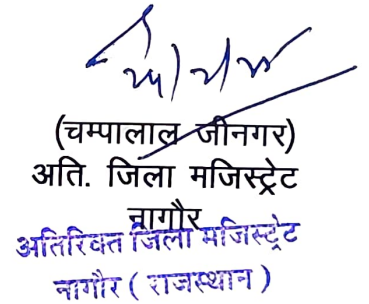 (चम्पालाल जीनगर)
अति. जिला मजिस्ट्रेट
नागौर
अतिरिक्त जिला मजिस्ट्रेट
नागौर ( राजस्थान )